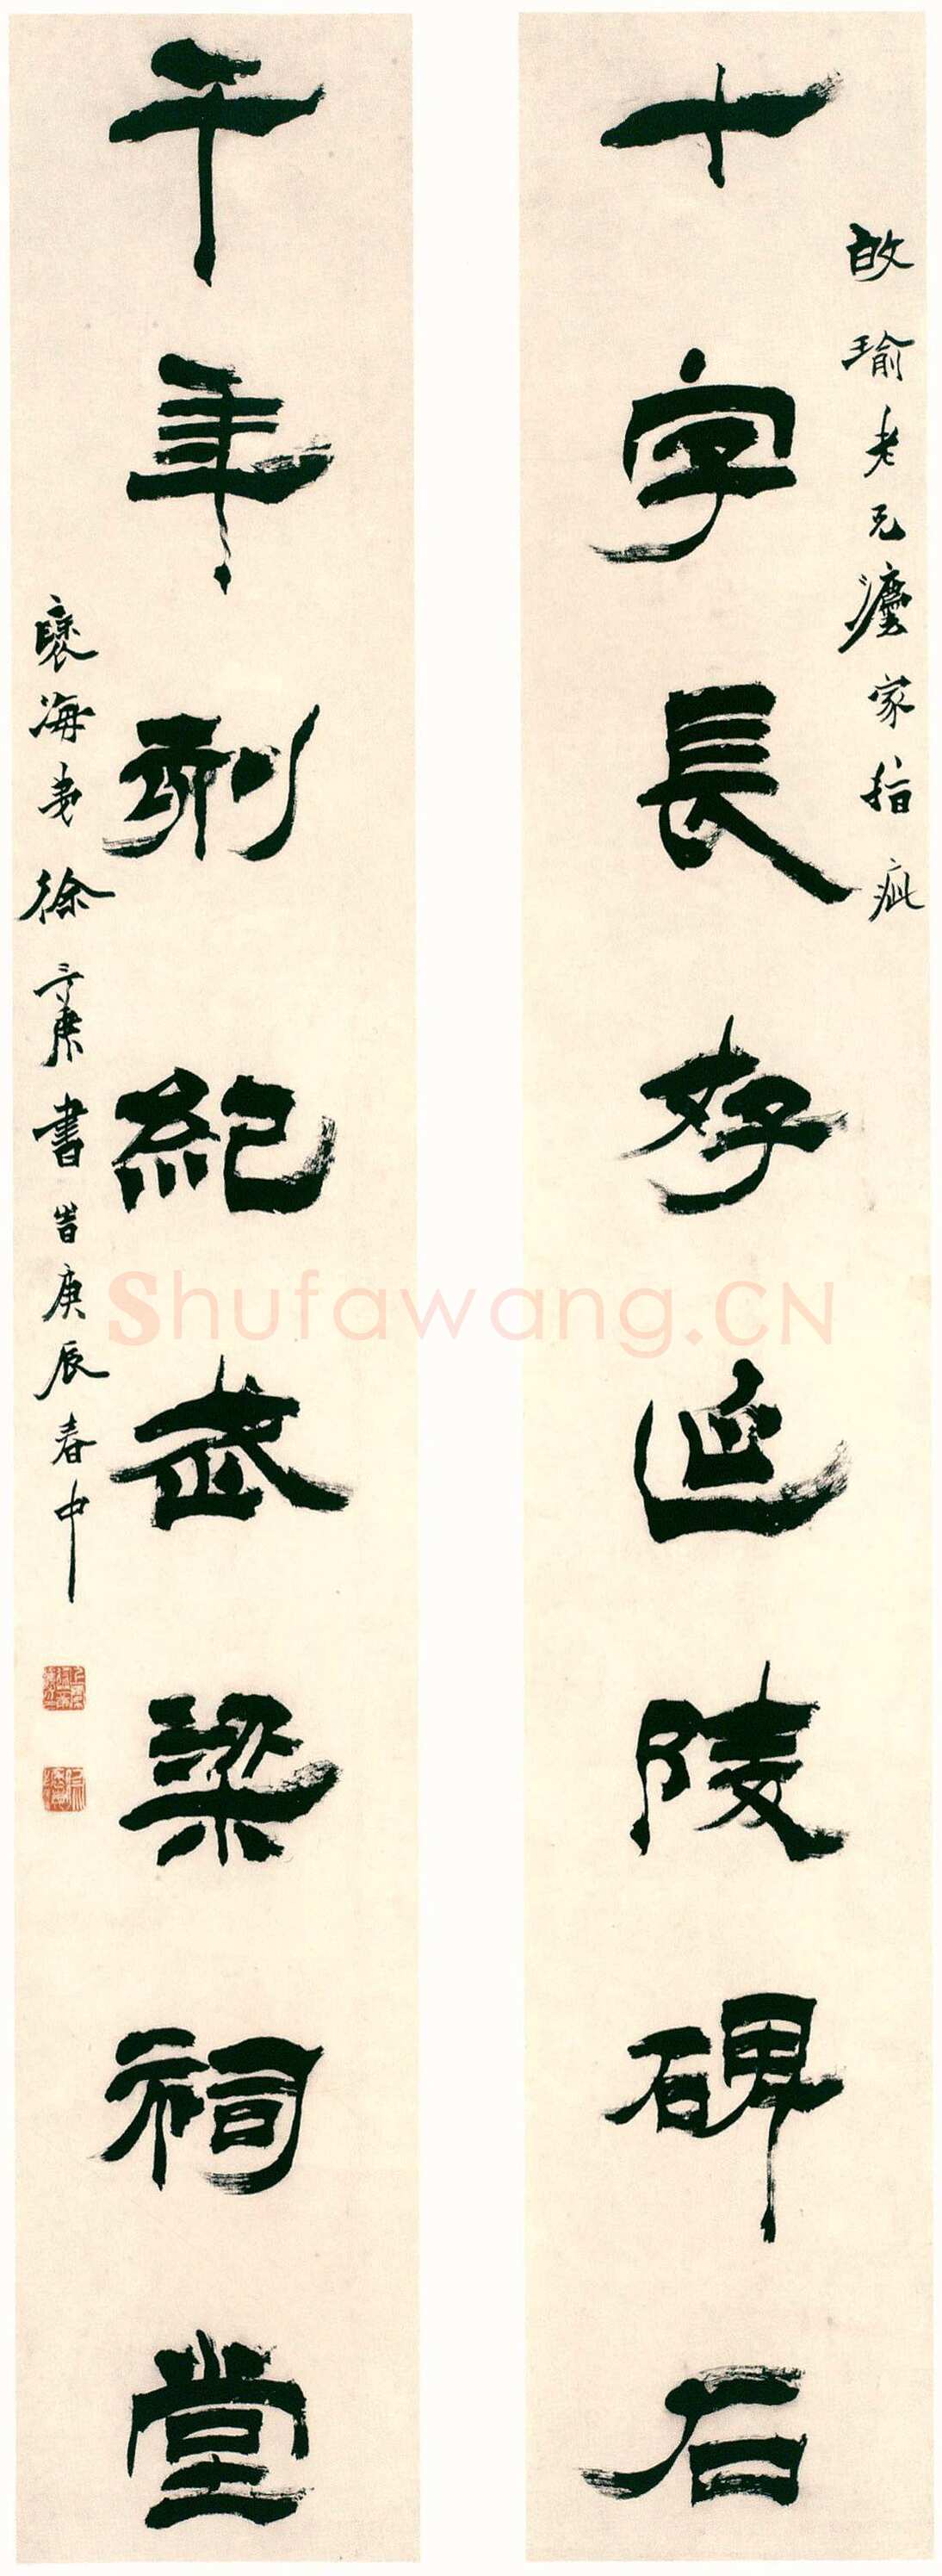 故瑜老兄灋家指疵
十字長存延陵碑石
千年刱紀武梁祠堂
褎海弟徐三庚書旹庚辰春中
Shufawang.CN